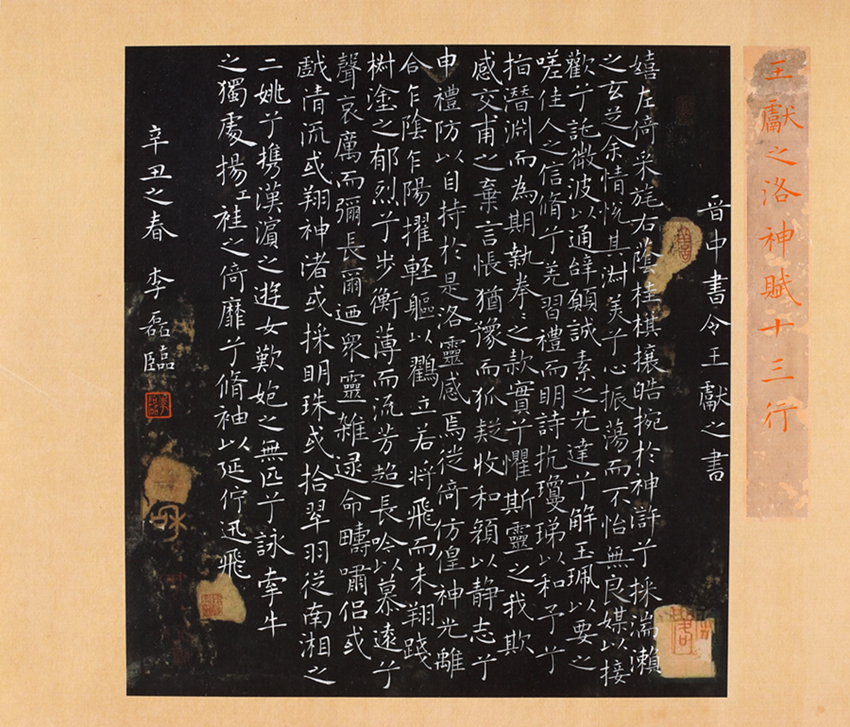 王獻之洛神賦十三行
晋中書令王獻之書
嬉左倚采旄右蔭桂棋攘皓捥於神滸兮採湍瀨
之玄芝余情悅其淑美兮心振蕩而不怡無良媒以接
歡兮託微波以通辭願誠素之先達兮解玉珮以要之
嗟佳人之信脩兮羌習禮而明詩抗瓊珶以和予兮
指潛淵而為期執拳々之款實兮懼斯靈之我欺
感交甫之棄言悵猶豫而狐疑收和顏以靜志兮
申禮防以自持於是洛靈感焉徙倚仿偟神光離
合乍陰乍陽擢輕軀以鸛立若將飛而未翔踐
樹塗之郁烈兮步衡薄而流芳超長吟以慕遠兮
聲哀厲而彌長爾迺衆靈雜遝命疇嘯侶或
戲清流或翔神渚或採明珠或拾翠羽從南湘之
二姚兮攜漢濱之遊女歎匏之無匹兮詠牽牛
之獨處揚工袿之倚靡兮脩袖以延佇迅飛
辛丑之春 李磊臨